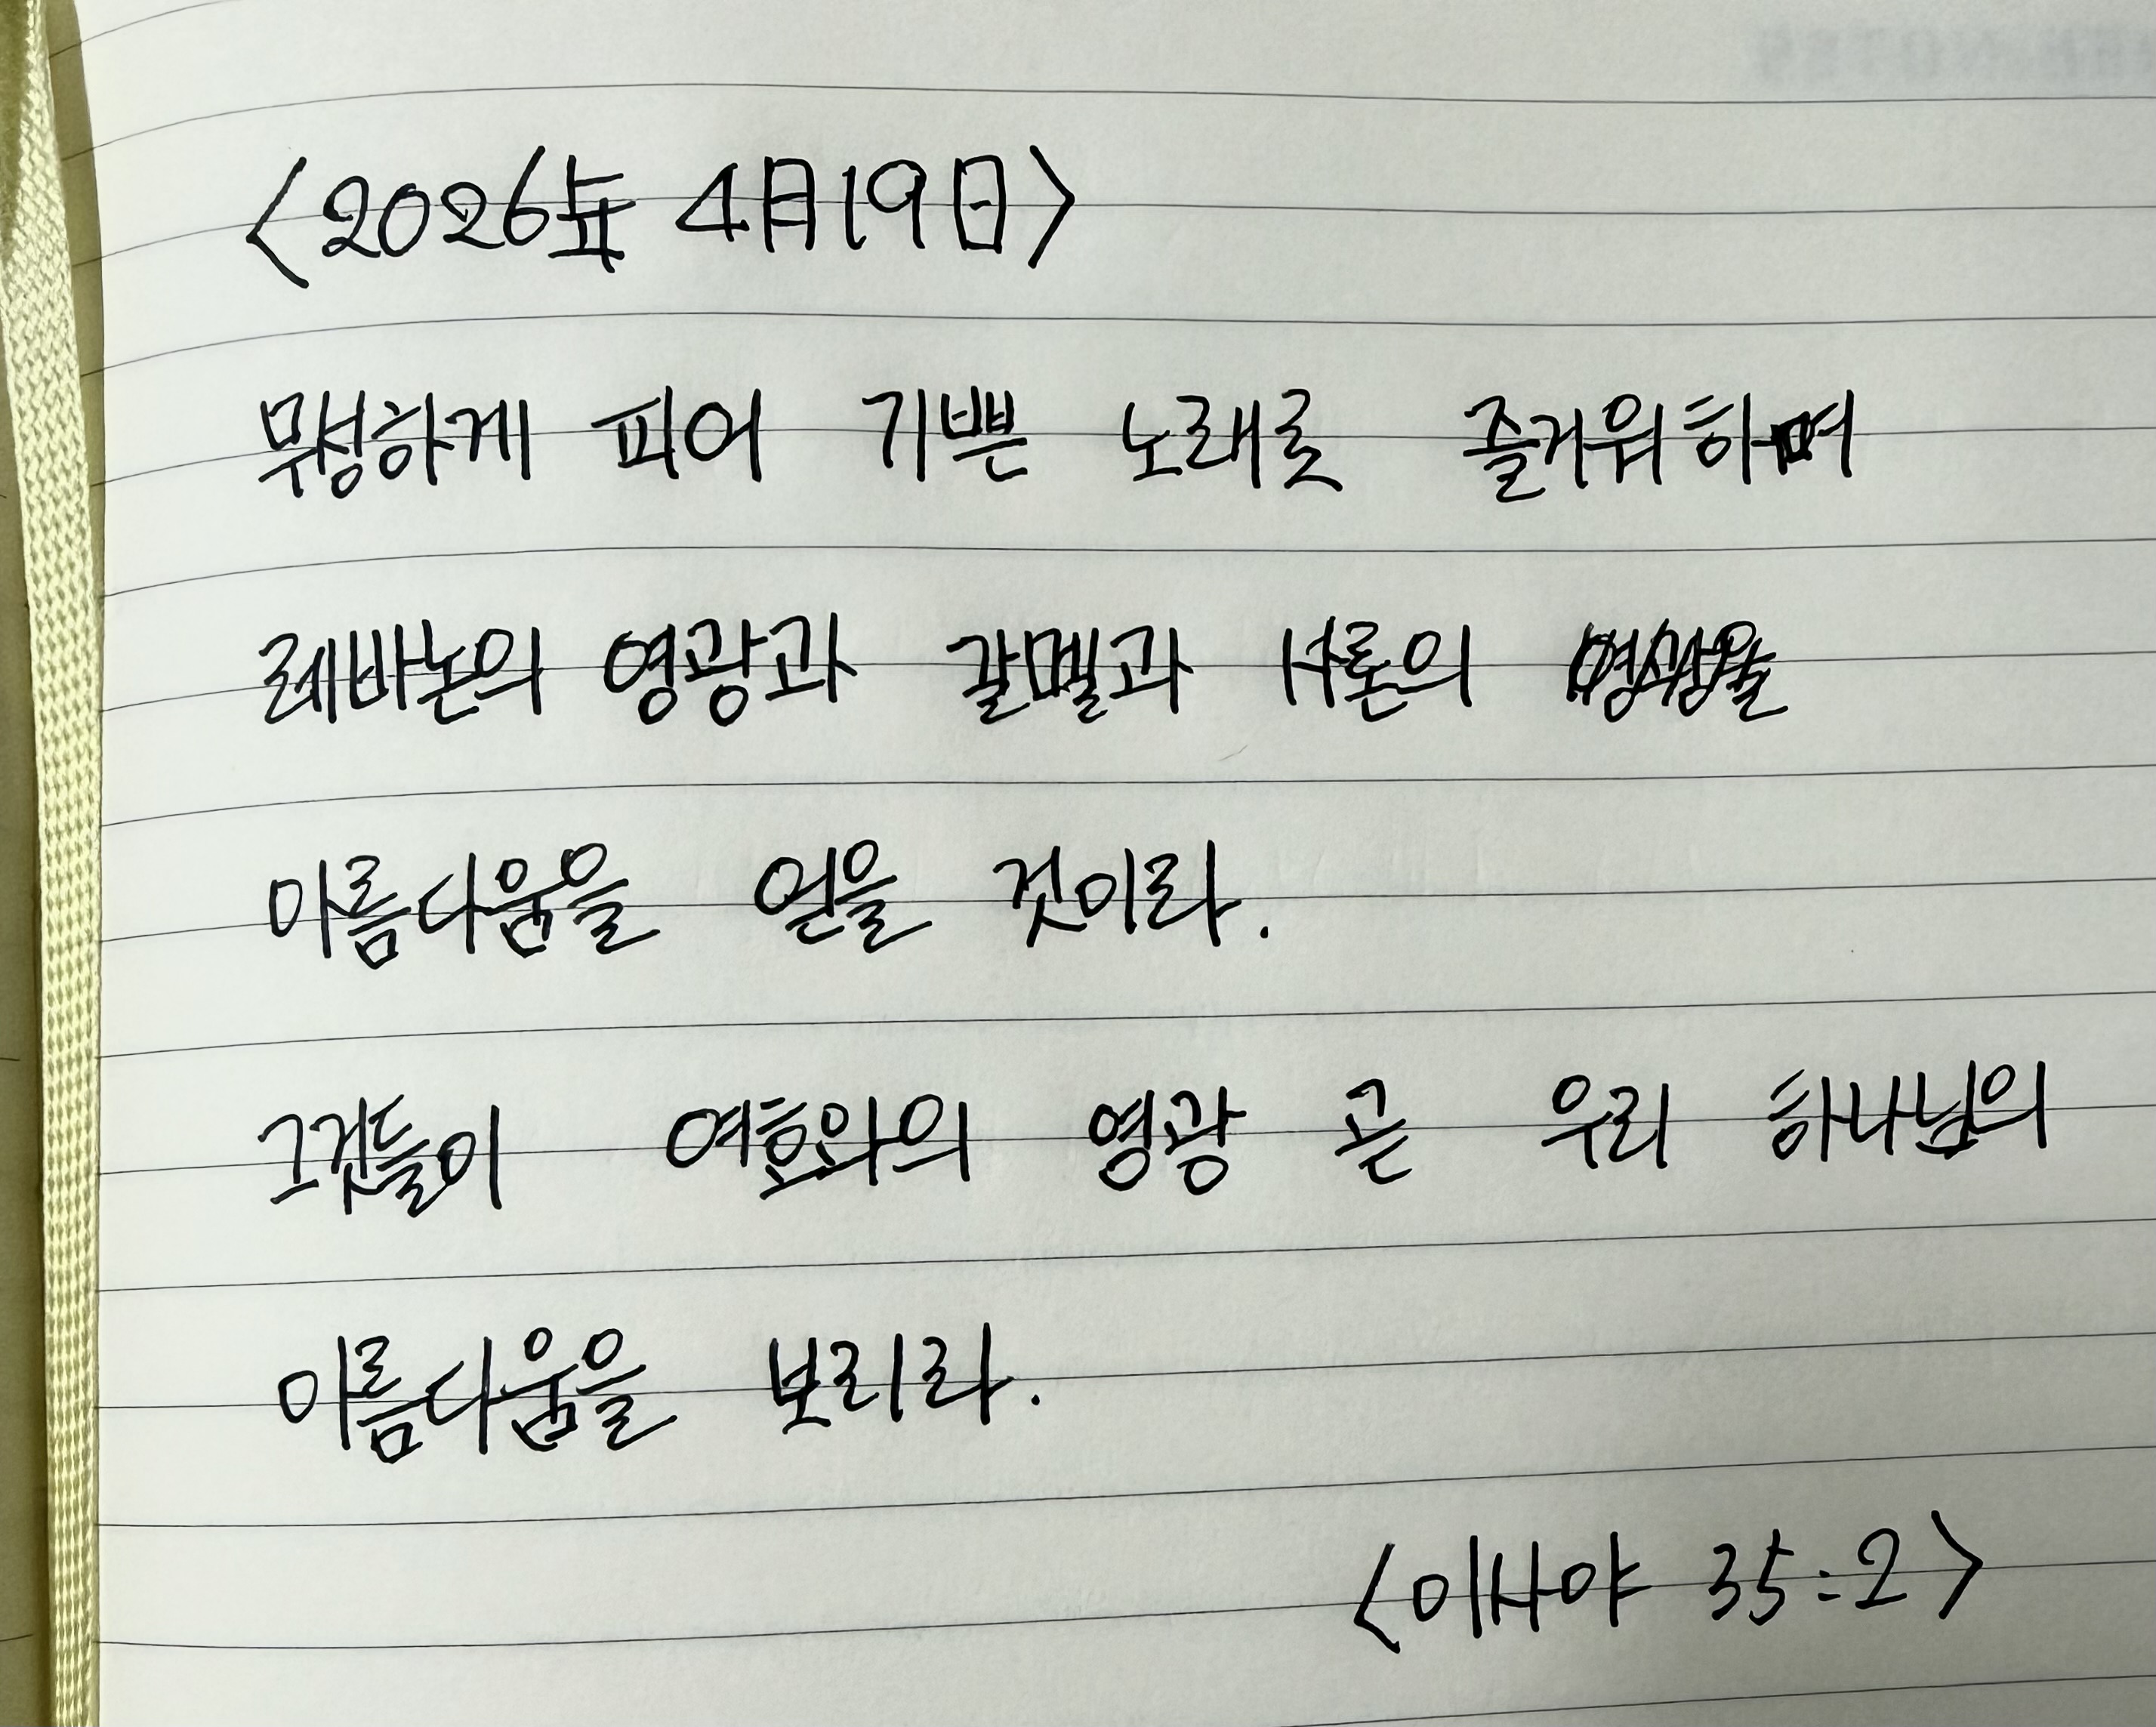 <2026年 4月19日>
무성하게 피어 기쁜 노래로 즐거워하며
레바논의 영광과 갈멜과 사론의
아름다움을 얻을 것이라.
그것들이 여호와의 영광 곧 우리 하나님의
아름다움을 보리라.
<이사야 35:2>